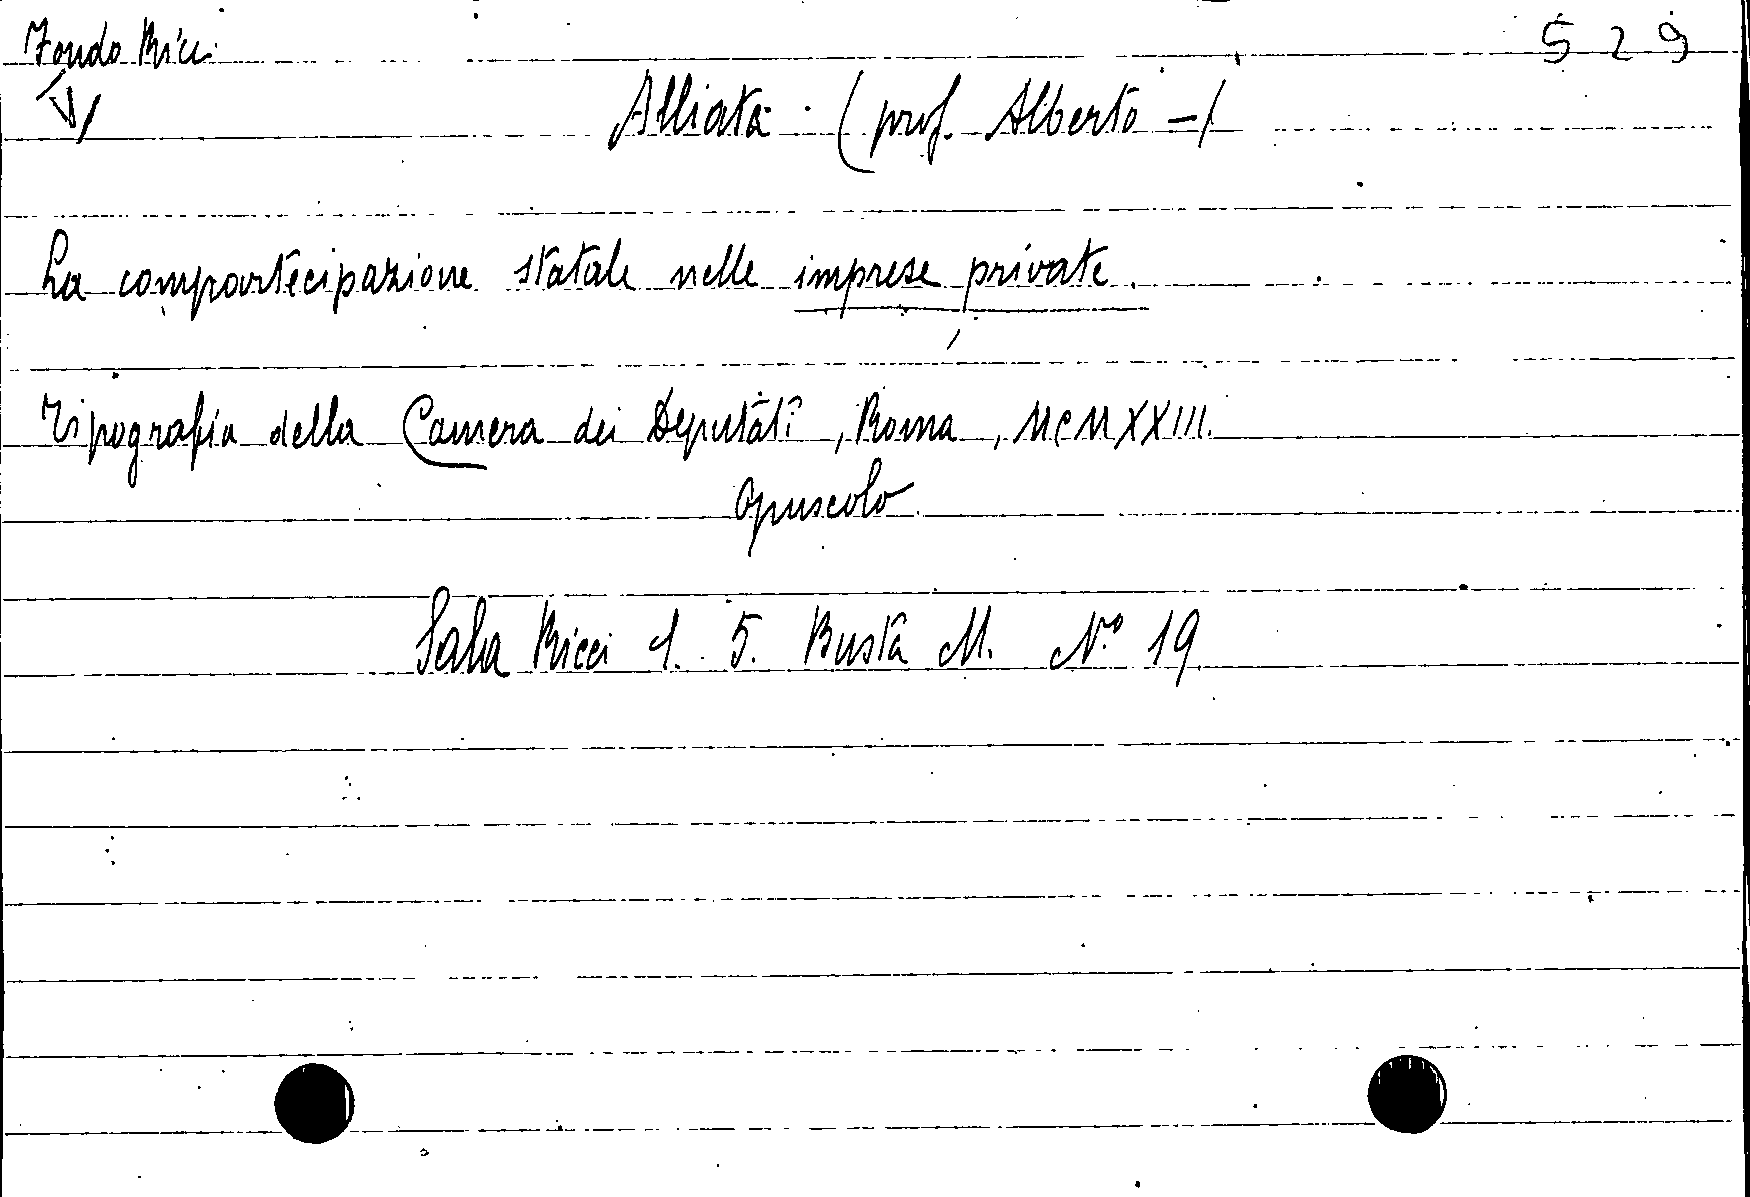 Fondo Ricci 529
Alliata (prof. Alberto -)
La compartecipazione statale nelle imprese private.
Tipografia della Camera dei Deputati, Roma, MCMXXIII.
Opuscolo
Sala Ricci 1. 5. Busta M. N.º 19